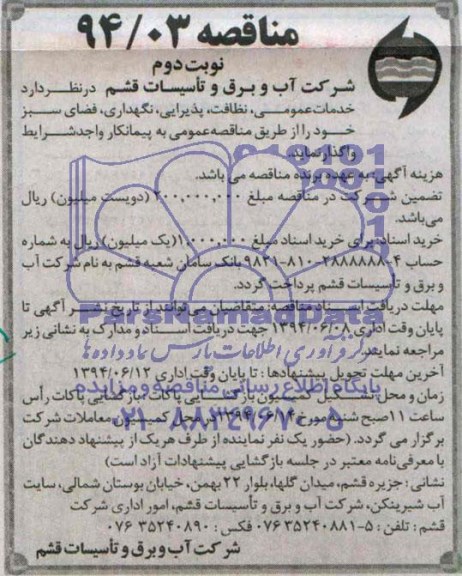 مناقصه ۹۴/۰۳
نوبت دوم
شرکت آب و برق و تأسیسات قشم درنظر دارد
خدمات عمومی، نظافت، پذیرایی، نگهداری، فضای سبز
خود را از طریق مناقصه عمومی به پیمانکار واجد شرایط
واگذار نماید.
هزینه آگهی: به عهده برنده مناقصه می باشد.
تضمین شرکت در مناقصه مبلغ ۲۰۰,۰۰۰,۰۰۰ (دویست میلیون) ریال
می‌باشد.
خرید اسناد: برای خرید اسناد مبلغ ۱,۰۰۰,۰۰۰ (یک میلیون) ریال به شماره
حساب بانک سامان شعبه قشم به نام شرکت آب
و برق و تأسیسات قشم پرداخت گردد.
مهلت دریافت اسناد مناقصه: متقاضیان می‌توانند از تاریخ نشر آگهی تا
پایان وقت اداری ۱۳۹۴/۰۶/۰۸ جهت دریافت اسناد و مدارک به نشانی زیر
مراجعه نمایند.
آخرین مهلت تحویل پیشنهادها: تا پایان وقت اداری ۱۳۹۴/۰۶/۱۲
زمان و محل تشکیل کمیسیون بازگشایی پاکات: بازگشایی پاکات رأس
ساعت ۱۱ صبح شنبه مورخ ۱۳۹۴/۰۶/۱۴ در محل کمیسیون معاملات شرکت
برگزار می گردد. (حضور یک نفر نماینده از طرف هریک از پیشنهاد دهندگان
با معرفی‌نامه معتبر در جلسه بازگشایی پیشنهادات آزاد است)
نشانی: جزیره قشم، میدان گلها، بلوار ۲۲ بهمن، خیابان بوستان شمالی، سایت
آب شیرینکن، شرکت آب و برق و تأسیسات قشم، امور اداری شرکت
قشم: تلفن: ۵-۳۵۲۴۰۸۸۱ ۰۷۶ فکس: ۳۵۲۴۰۸۹۰ ۰۷۶
شرکت آب و برق و تأسیسات قشم
ParsNamadData
مرکز فرآوری اطلاعات پارس نماد داده ها
پایگاه اطلاع رسانی مناقصه و مزایده
۰۲۱-۸۸۳۴۹۶۷۰-۵